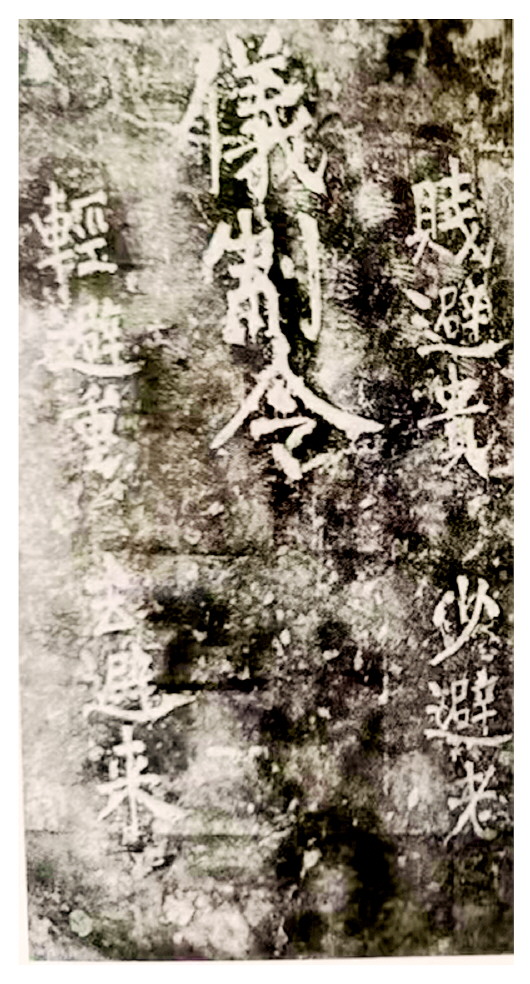 賤避貴
少避老
儀制令
輕避重
去避来